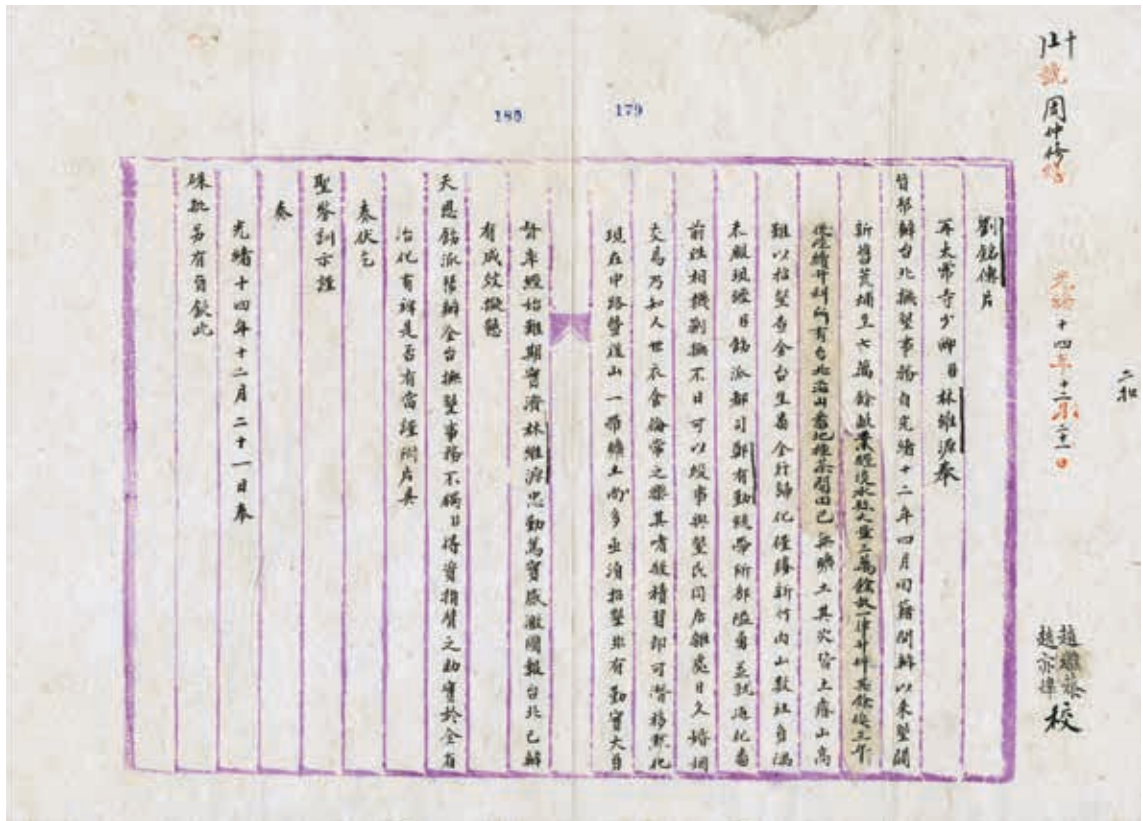 二扣
十計號 周仲修繕 光緒十四年十二月二十一日
趙 校
趙
179
180
劉銘傳片
再太常寺少卿臣林維源奉
旨幫辦台北撫墾事務自光緒十二年四月回籍開辦以來墾闢
新舊荒埔至七萬餘畝業經淡水縣丈量三萬餘畝一律升科其餘俟三年
後陸續升科所有台北沿山番地種茶開田已無曠土其穴皆土瘠山高
難以招墾查全台生番全行歸化僅賸新竹內山數社負隅
未服現經臣銘派都司鄭有勤統帶所部隘勇並就近化番
前往相機剿撫不日可以竣事與墾民同居雜處日久婚姻
交易乃知人世衣食倫常之樂其嗜殺積習卻可潛移默化
現在中路營道山一帶曠土尚多亟須招墾非有勤實大員
督率經始難期實濟林維源忠勤篤實感激圖報台北已辦
有成效擬懇
天恩飭派幫辦全台撫墾事務不獨臣得資指臂之助實於全台
治化有裨是否有當謹附片具
奏伏乞
聖鑒訓示謹
奏
光緒十四年十二月二十一日奉
硃批另有旨欽此